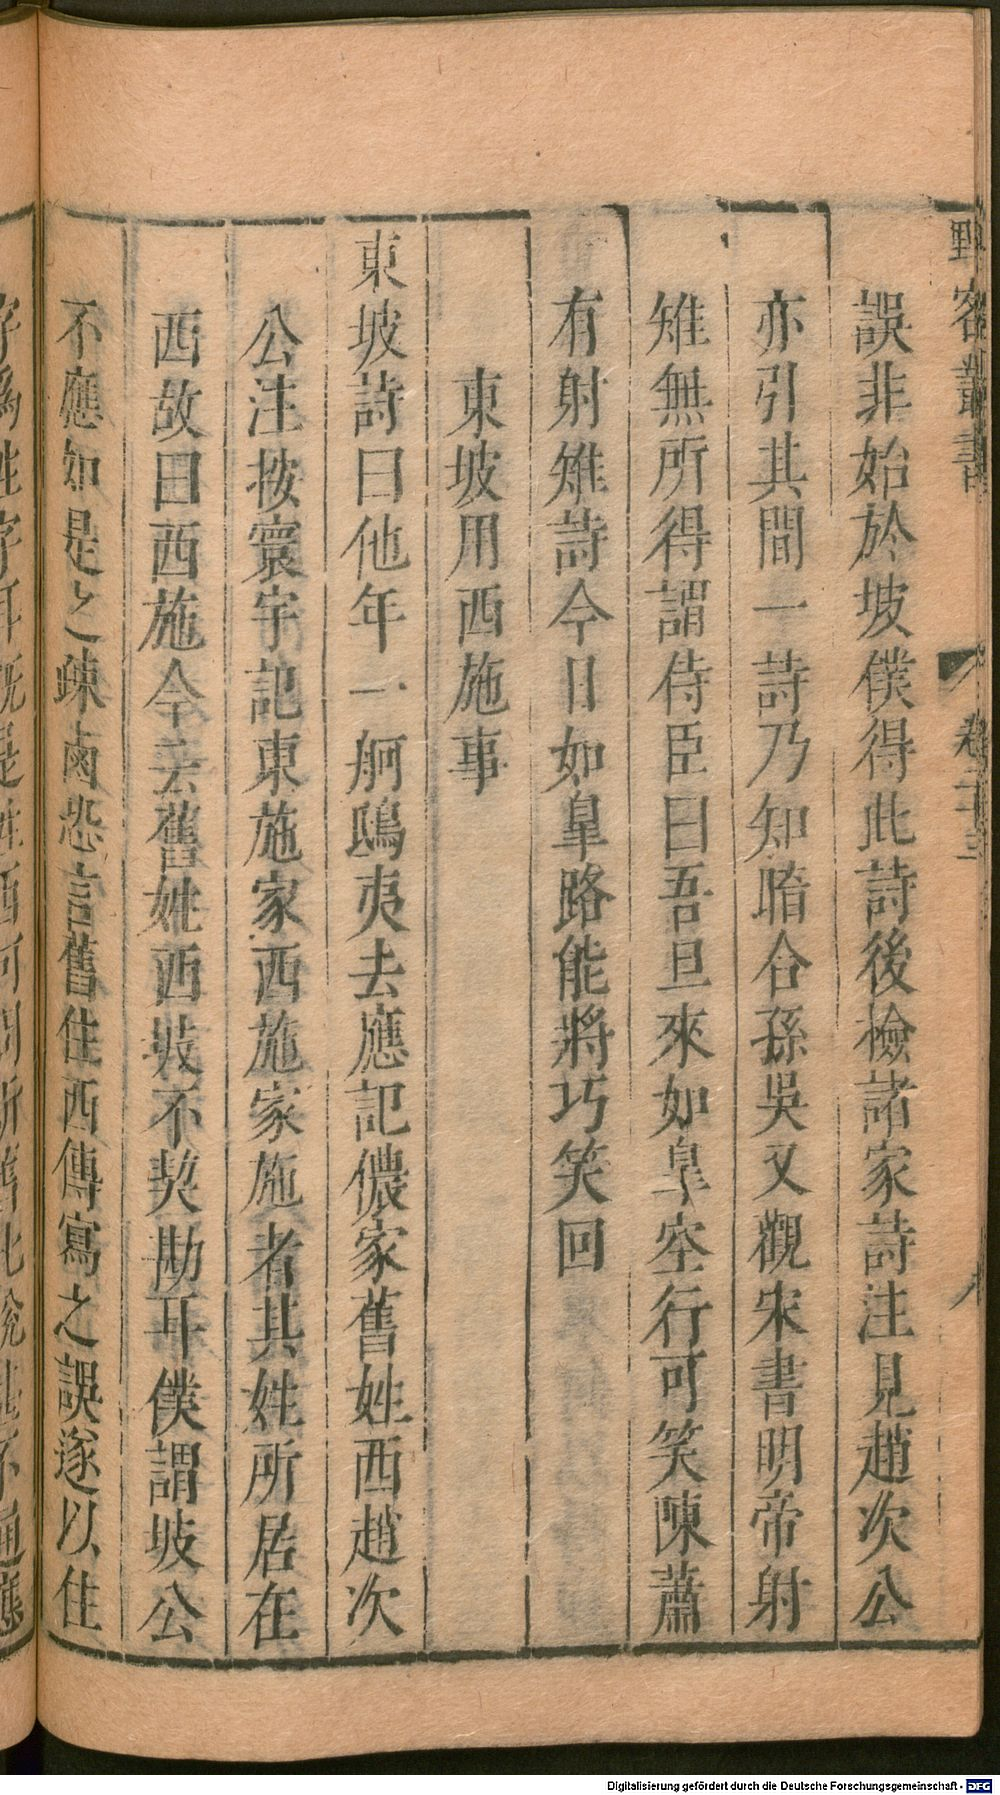 野客叢書
卷二十三
誤非始於坡僕得此詩後檢諸家詩注見趙次公
亦引其間一詩乃知暗合孫吳又觀宋書明帝射
雉無所得謂侍臣曰吾旦來如臯空行可笑陳蕭
有射雉詩今日如臯路能將巧笑回
東坡用西施事
東坡詩曰他年一舸鴟夷去應記儂家舊姓西趙次
公注按寰宇記東施家西施家施者其姓所居在
西故曰西施今云舊姓西坡不契勘耳僕謂坡公
不應如是之疎鹵恐言舊住西傳寫之誤遂以住
字為姓字耳既是姓西何問新舊此說甚不通應
Digitalisierung gefördert durch die Deutsche Forschungsgemeinschaft - DFG